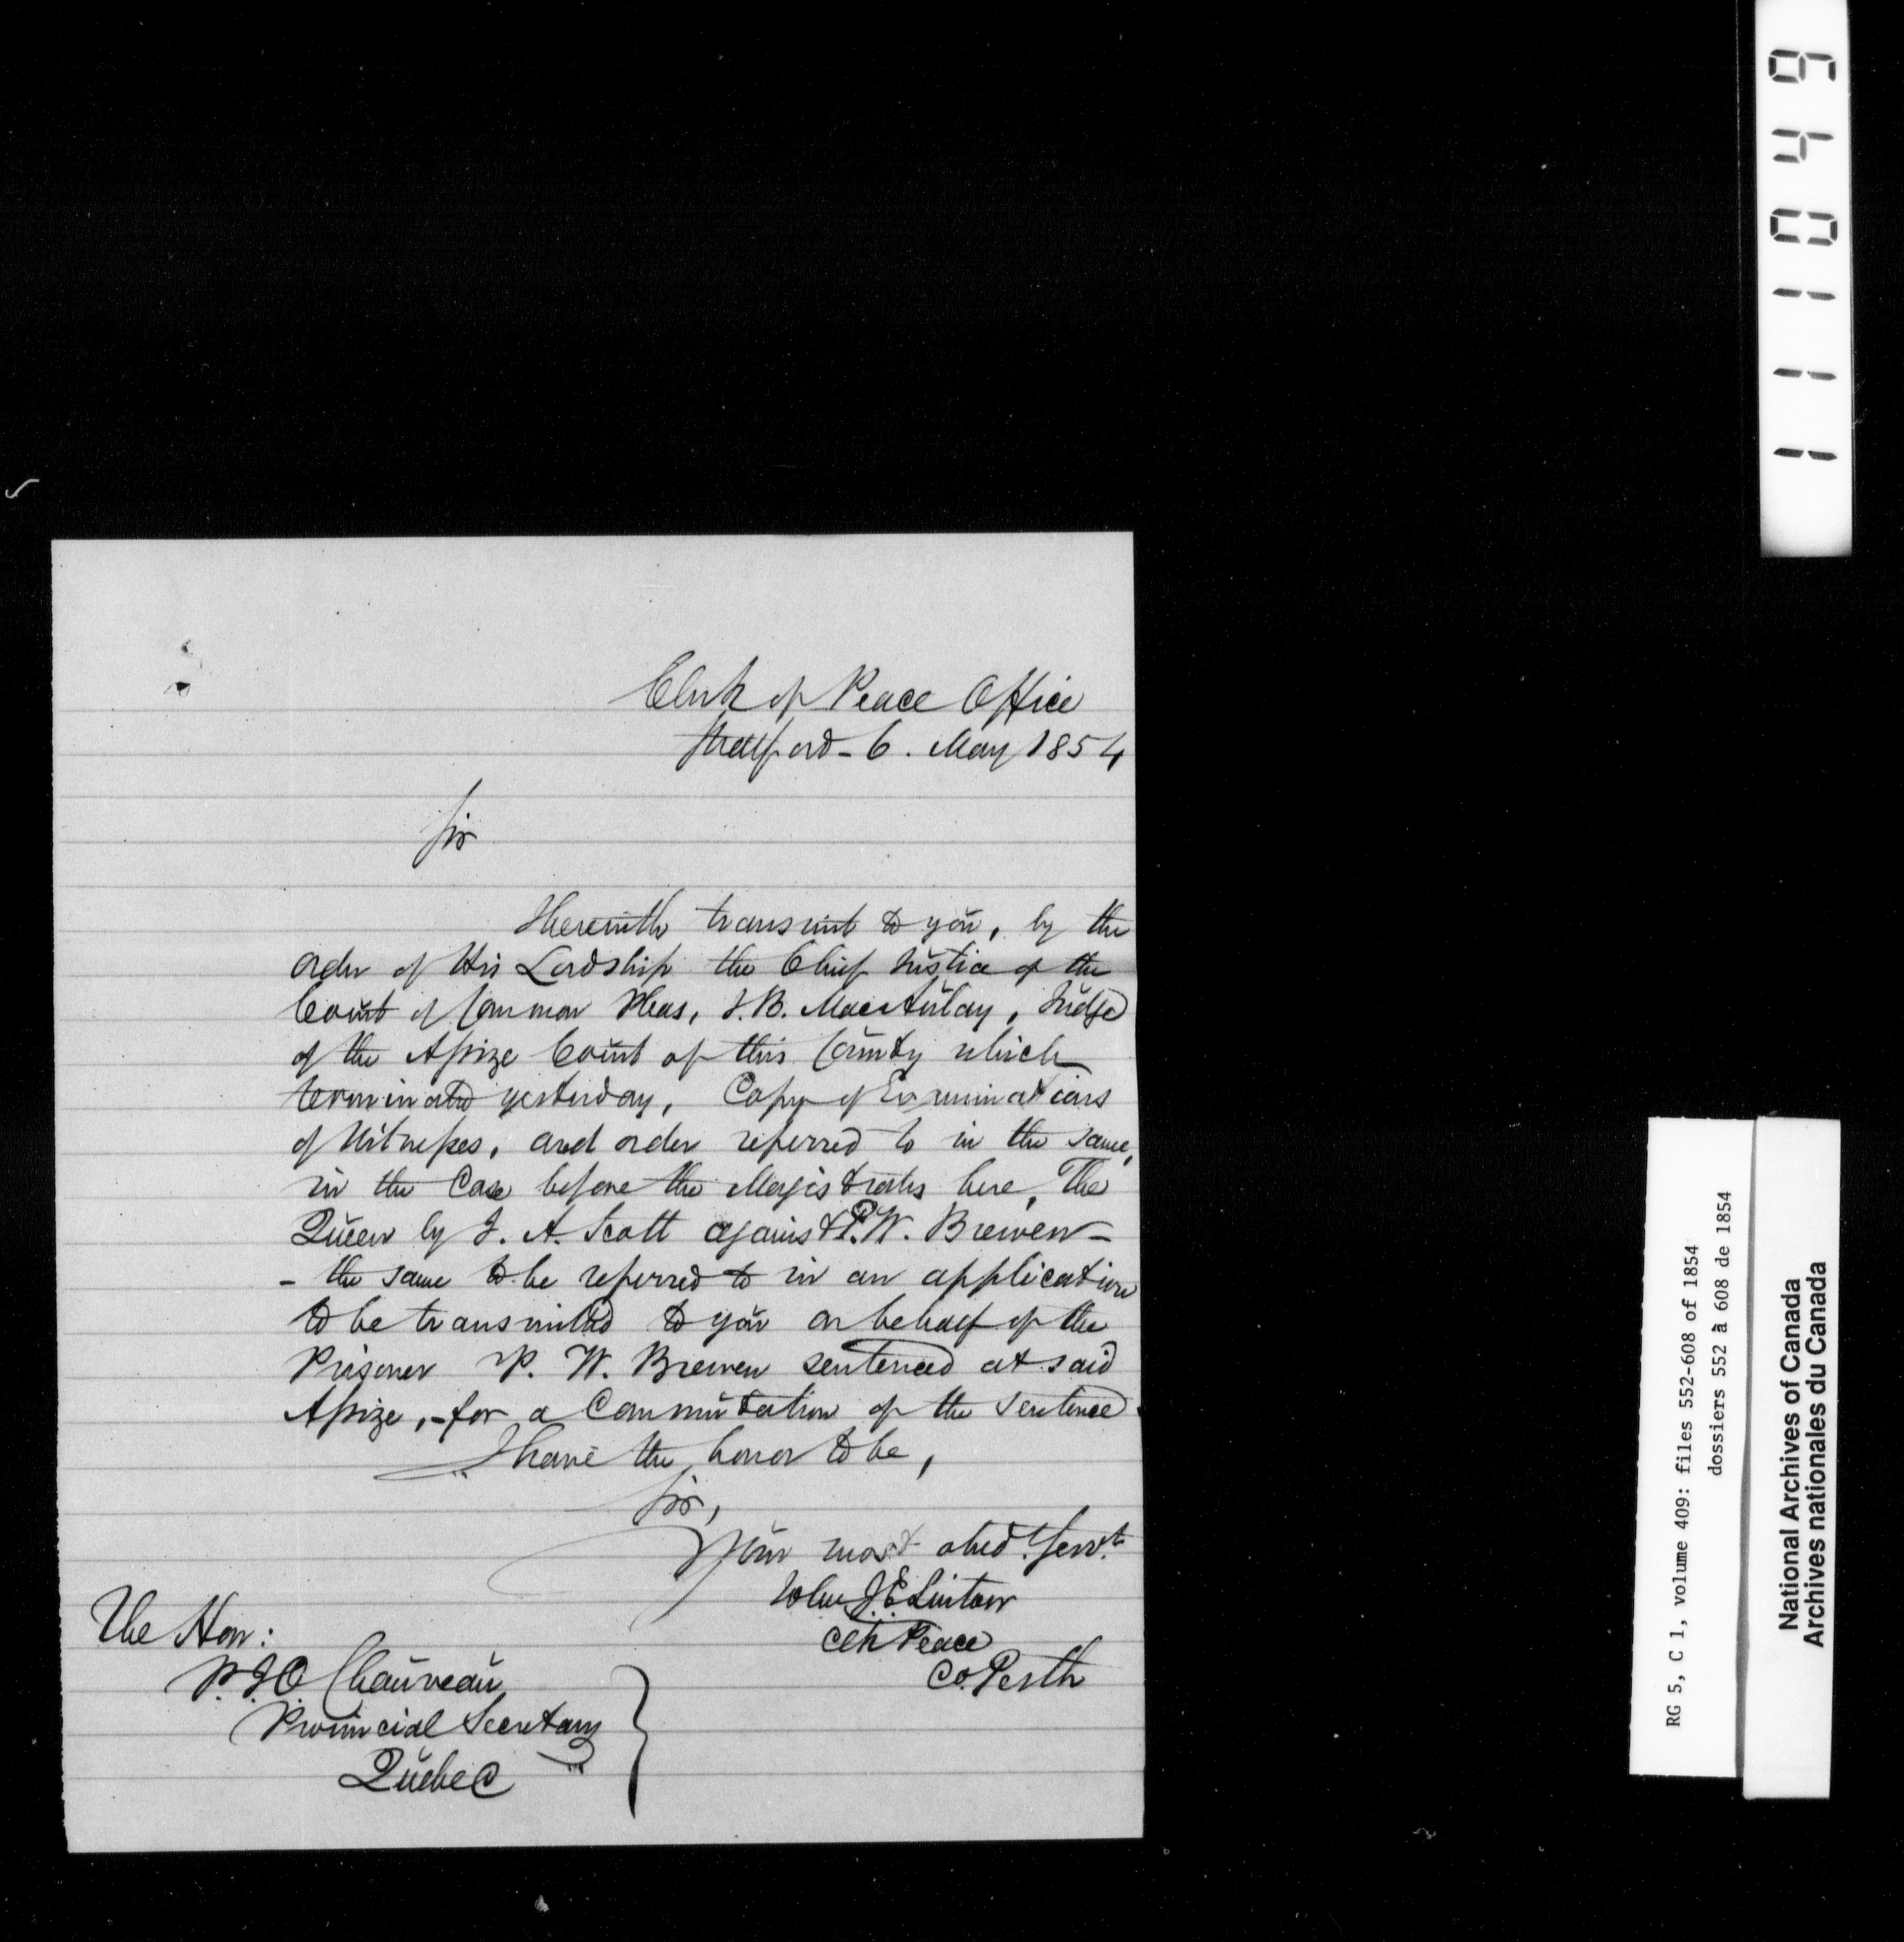 Clerk of Peace Office
Stratford - 6. May 1854
Sir
Herewith transmit to you, by the
order of His Lordship the Chief Justice of the
Court of Common Pleas, J. B. MacAulay, Judge
of the Assize Court of this County which
terminated yesterday, Copy of Examinations
of Witnesses, and order referred to in the same,
in the Case before the Magistrates here, The
Queen by J. A. Scott against P. W. Brewen -
- the same to be referred to in an application
to be transmitted to you on behalf of the
Prisoner P. W. Brewen sentenced at said
Assize, - for a Commutation of the sentence.
I have the honor to be,
Sir,
Your most obed. Servt.
John J. E. Linton
Clk Peace
Co. Perth
The Hon:
P. J. O Chauveau
Provincial Secretary
Quebec
111049
RG 5, C 1, volume 409: files 552-608 of 1854
dossiers 552 à 608 de 1854
National Archives of Canada
Archives nationales du Canada